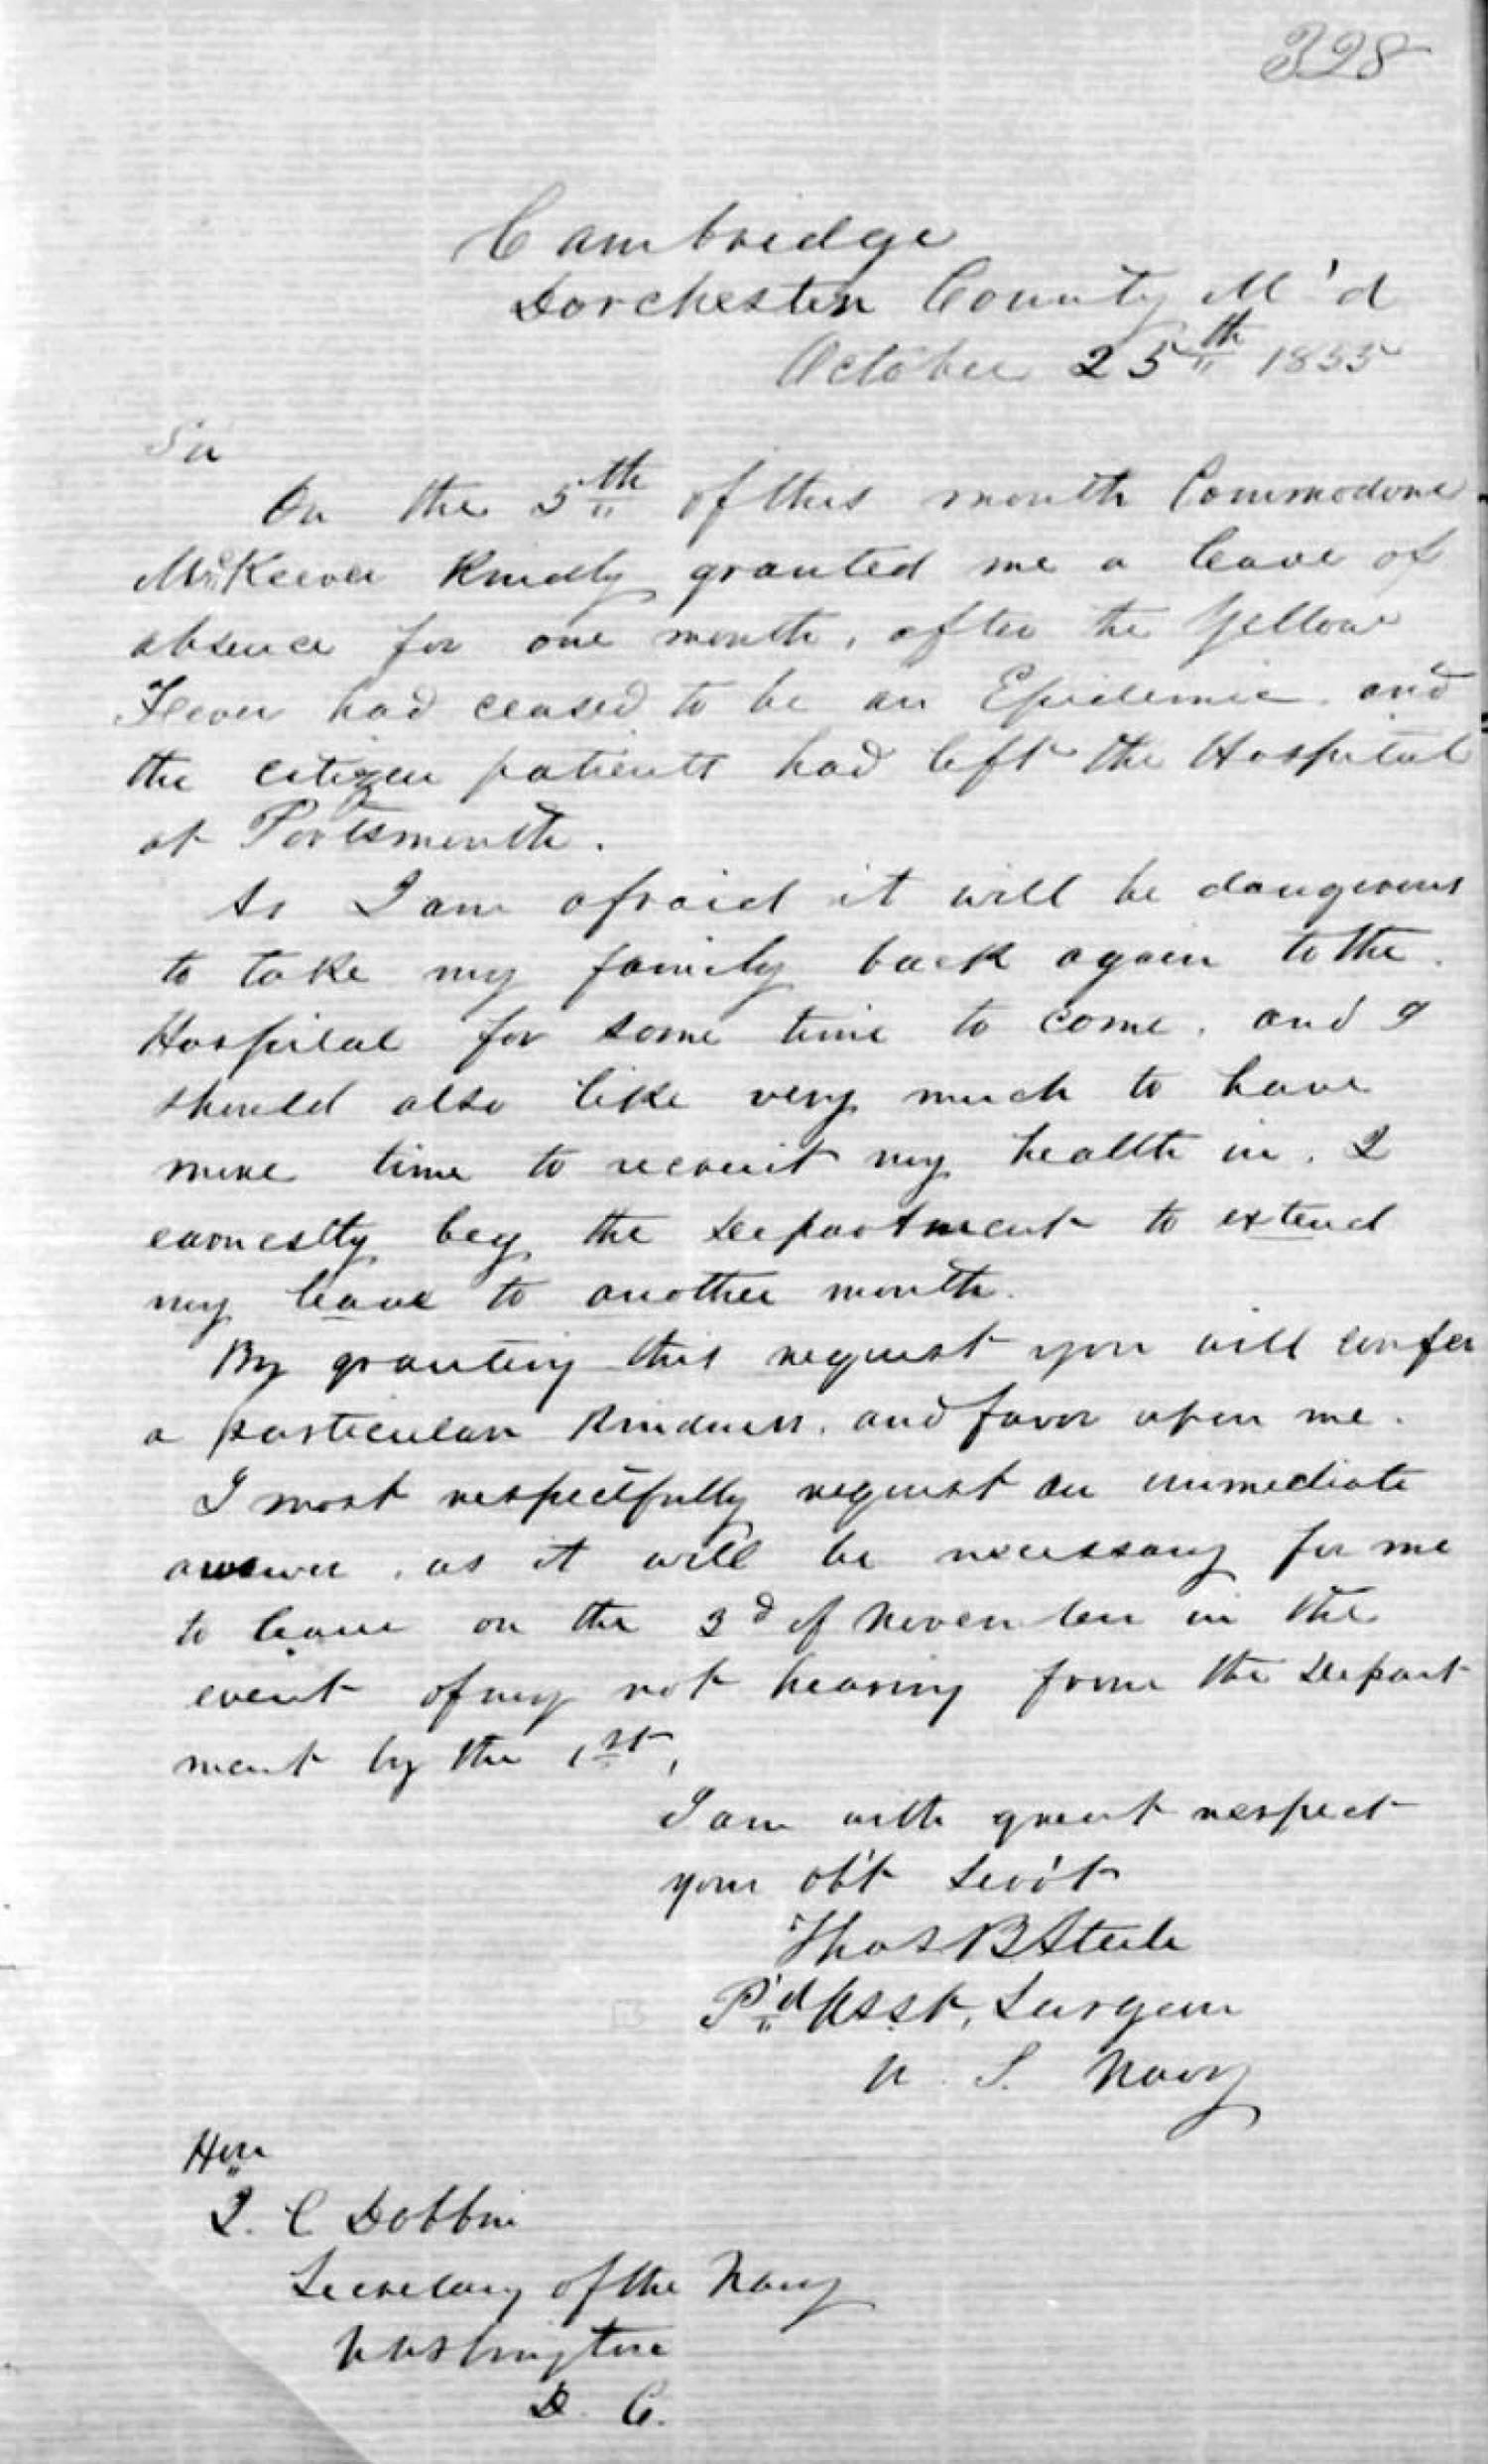 328
Cambridge
Dorchester County M'd
October 25th 1855
Sir
On the 5th of this month Commodore
McKeever kindly granted me a leave of
absence for one month, after the Yellow
Fever had ceased to be an Epidemic and
the citizen patients had left the Hospital
at Portsmouth.
As I am afraid it will be dangerous
to take my family back again to the
Hospital for some time to come, and I
should also like very much to have
more time to recruit my health in, I
earnestly beg the Department to extend
my leave to another month.
By granting this request you will confer
a particular kindness, and favor upon me.
I most respectfully request an immediate
answer, as it will be necessary for me
to leave on the 3d of November in the
event of my not hearing from the Depart
ment by the 1st,
I am with great respect
your ob't Serv't
Thos B Steele
P'd Asst, Surgeon
U. S. Navy
Hon
J. C Dobbin
Secretary of the Navy
Washington
D. C.